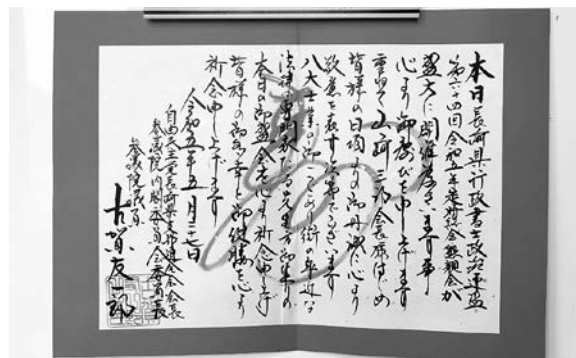 本日長崎県行政書士政治連盟
第六十四回令和五年定時総会懇親会が
盛大に開催されます事
心より御慶びを申し上げます
重ねて山﨑三郎会長様はじめ
皆様の日頃よりの御丹誠に心より
敬意を表す次第でございます
八大士業の御一つであり街の身近な
法律の専門家たる先生方御集りの
本日の御盛会を心より祈念申し上げ
皆様の御多幸と御健勝を心より
祈念申し上げます
令和五年五月二十七日
自由民主党長崎県支部連合会会長
参議院内閣委員会委員長
参議院議員
古賀友一郎